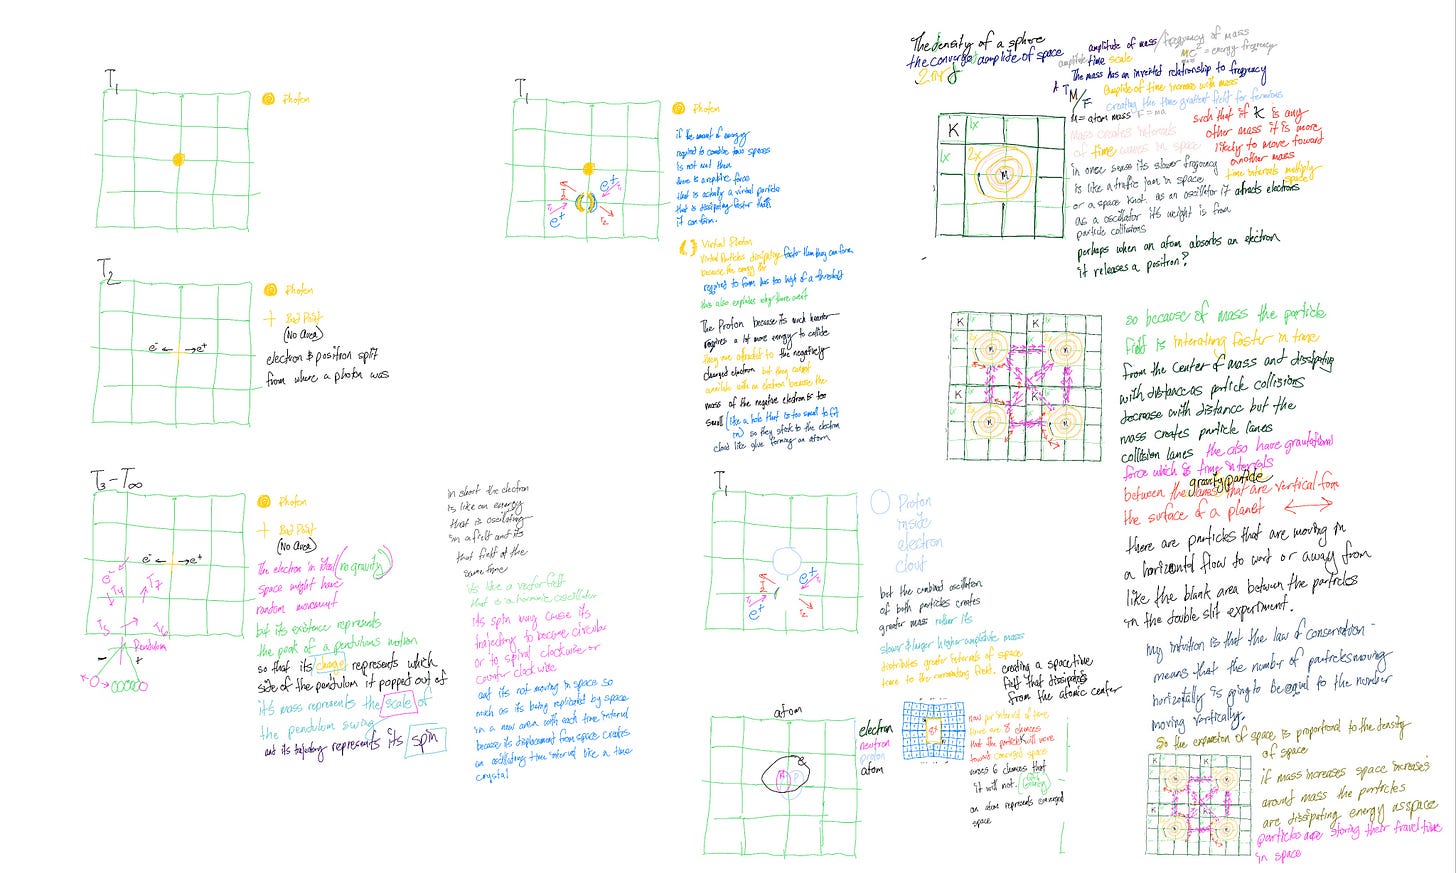 T1
Photon
T2
Photon
Bad Point
(No Area)
e- ← → e+
electron & positron split
from where a photon was
T3-T∞
Photon
Bad Point
(No Area)
e- ← → e+
e-
T4
T7
T5
T6
Pendulum
-
+
The electron in ideal (no gravity)
space might have
random movement
but its existence represents
the peak of a pendulums motion
so that its charge represents which
side of the pendulum it popped out of
it's mass represents the scale of
the pendulum swing
and its trajectory represents its spin
in short the electron
is like an energy
that is oscillating
in a field and its
that field at the
same time
its like a vector field
that is a harmonic oscillator
its spin may cause its
trajectory to become circular
or to spiral clockwise or
counter clockwise
and its not moving in space so
much as its being replicated by space
in a new area with each time interval
because its displacement from space creates
an oscillating time interval like a time
crystal
T1
Photon
e+
e+
if the amount of energy
required to combine two spaces
is not met then
there is a repulsive force
that is actually a virtual particle
that is dissipating faster than
it can form.
Virtual Photon
Virtual Particles dissipating faster than they can form
because the energy
required to form has too high of a threshold
this also explains why there arent
The Proton because its much heavier
requires a lot more energy to collide
they are attracted to the negatively
charged electron but they cannot
annihilate with an electron because the
mass of the negative electron is too
small (like a hole that is too small to fit
in) so they stick to the electron
cloud like glue forming an atom
T1
e+
e+
Proton
inside
electron
cloud
but the combined oscillation
of both particles creates
greater mass rather its
slower & larger higher amplitude mass
distributes greater intervals of space
time to the surrounding field.
creating a spacetime
field that dissipates
from the atomic center
atom
e
N
P
electron
neutron
proton
atom
now per interval of time
there are 8 chances
that the particle K will move
toward converged space
verses 6 chances that
it will not.
an atom represents converged
space
The density of a sphere
the converged amplitude of space
2πr
amplitude of mass / frequency of mass
amplitude time scale
MC2 = energy frequency
mass
The mass has an inverted relationship to frequency
A T M/F
Amplitude of time increase with mass
creating the time gradient field for fermions
M = atom mass F = ma
Mass creates intervals
of time waves in space
such that if K is any
other mass it is more
likely to move toward
another mass
time intervals multiply
space
in once sense its slower frequency
is like a traffic jam in space
or a space knot. as an oscillator it attracts electrons
as a oscillator its weight is from
particle collisions
perhaps when an atom absorbs an electron
it releases a positron?
K
1x
1x
2x
M
K
K
K
K
so because of mass the particle
field is interacting faster in time
from the center of mass and dissipating
with distance as particle collisions
decrease with distance but the
mass creates particle lanes
collision lanes the also have gravitational
force which is time intervals
gravity particle
between the lanes that are vertical from
the surface of a planet
there are particles that are moving in
a horizontal flow to want or away from
like the blank area between the particles
in the double slit experiment.
my intuition is that the law of conservation
means that the number of particles moving
horizontally is going to be equal to the number
moving vertically.
So the expansion of space is proportional to the density
of space
if mass increases space increases
around mass the particles
are dissipating energy as space
particles are storing their travel time
in space
K
K
K